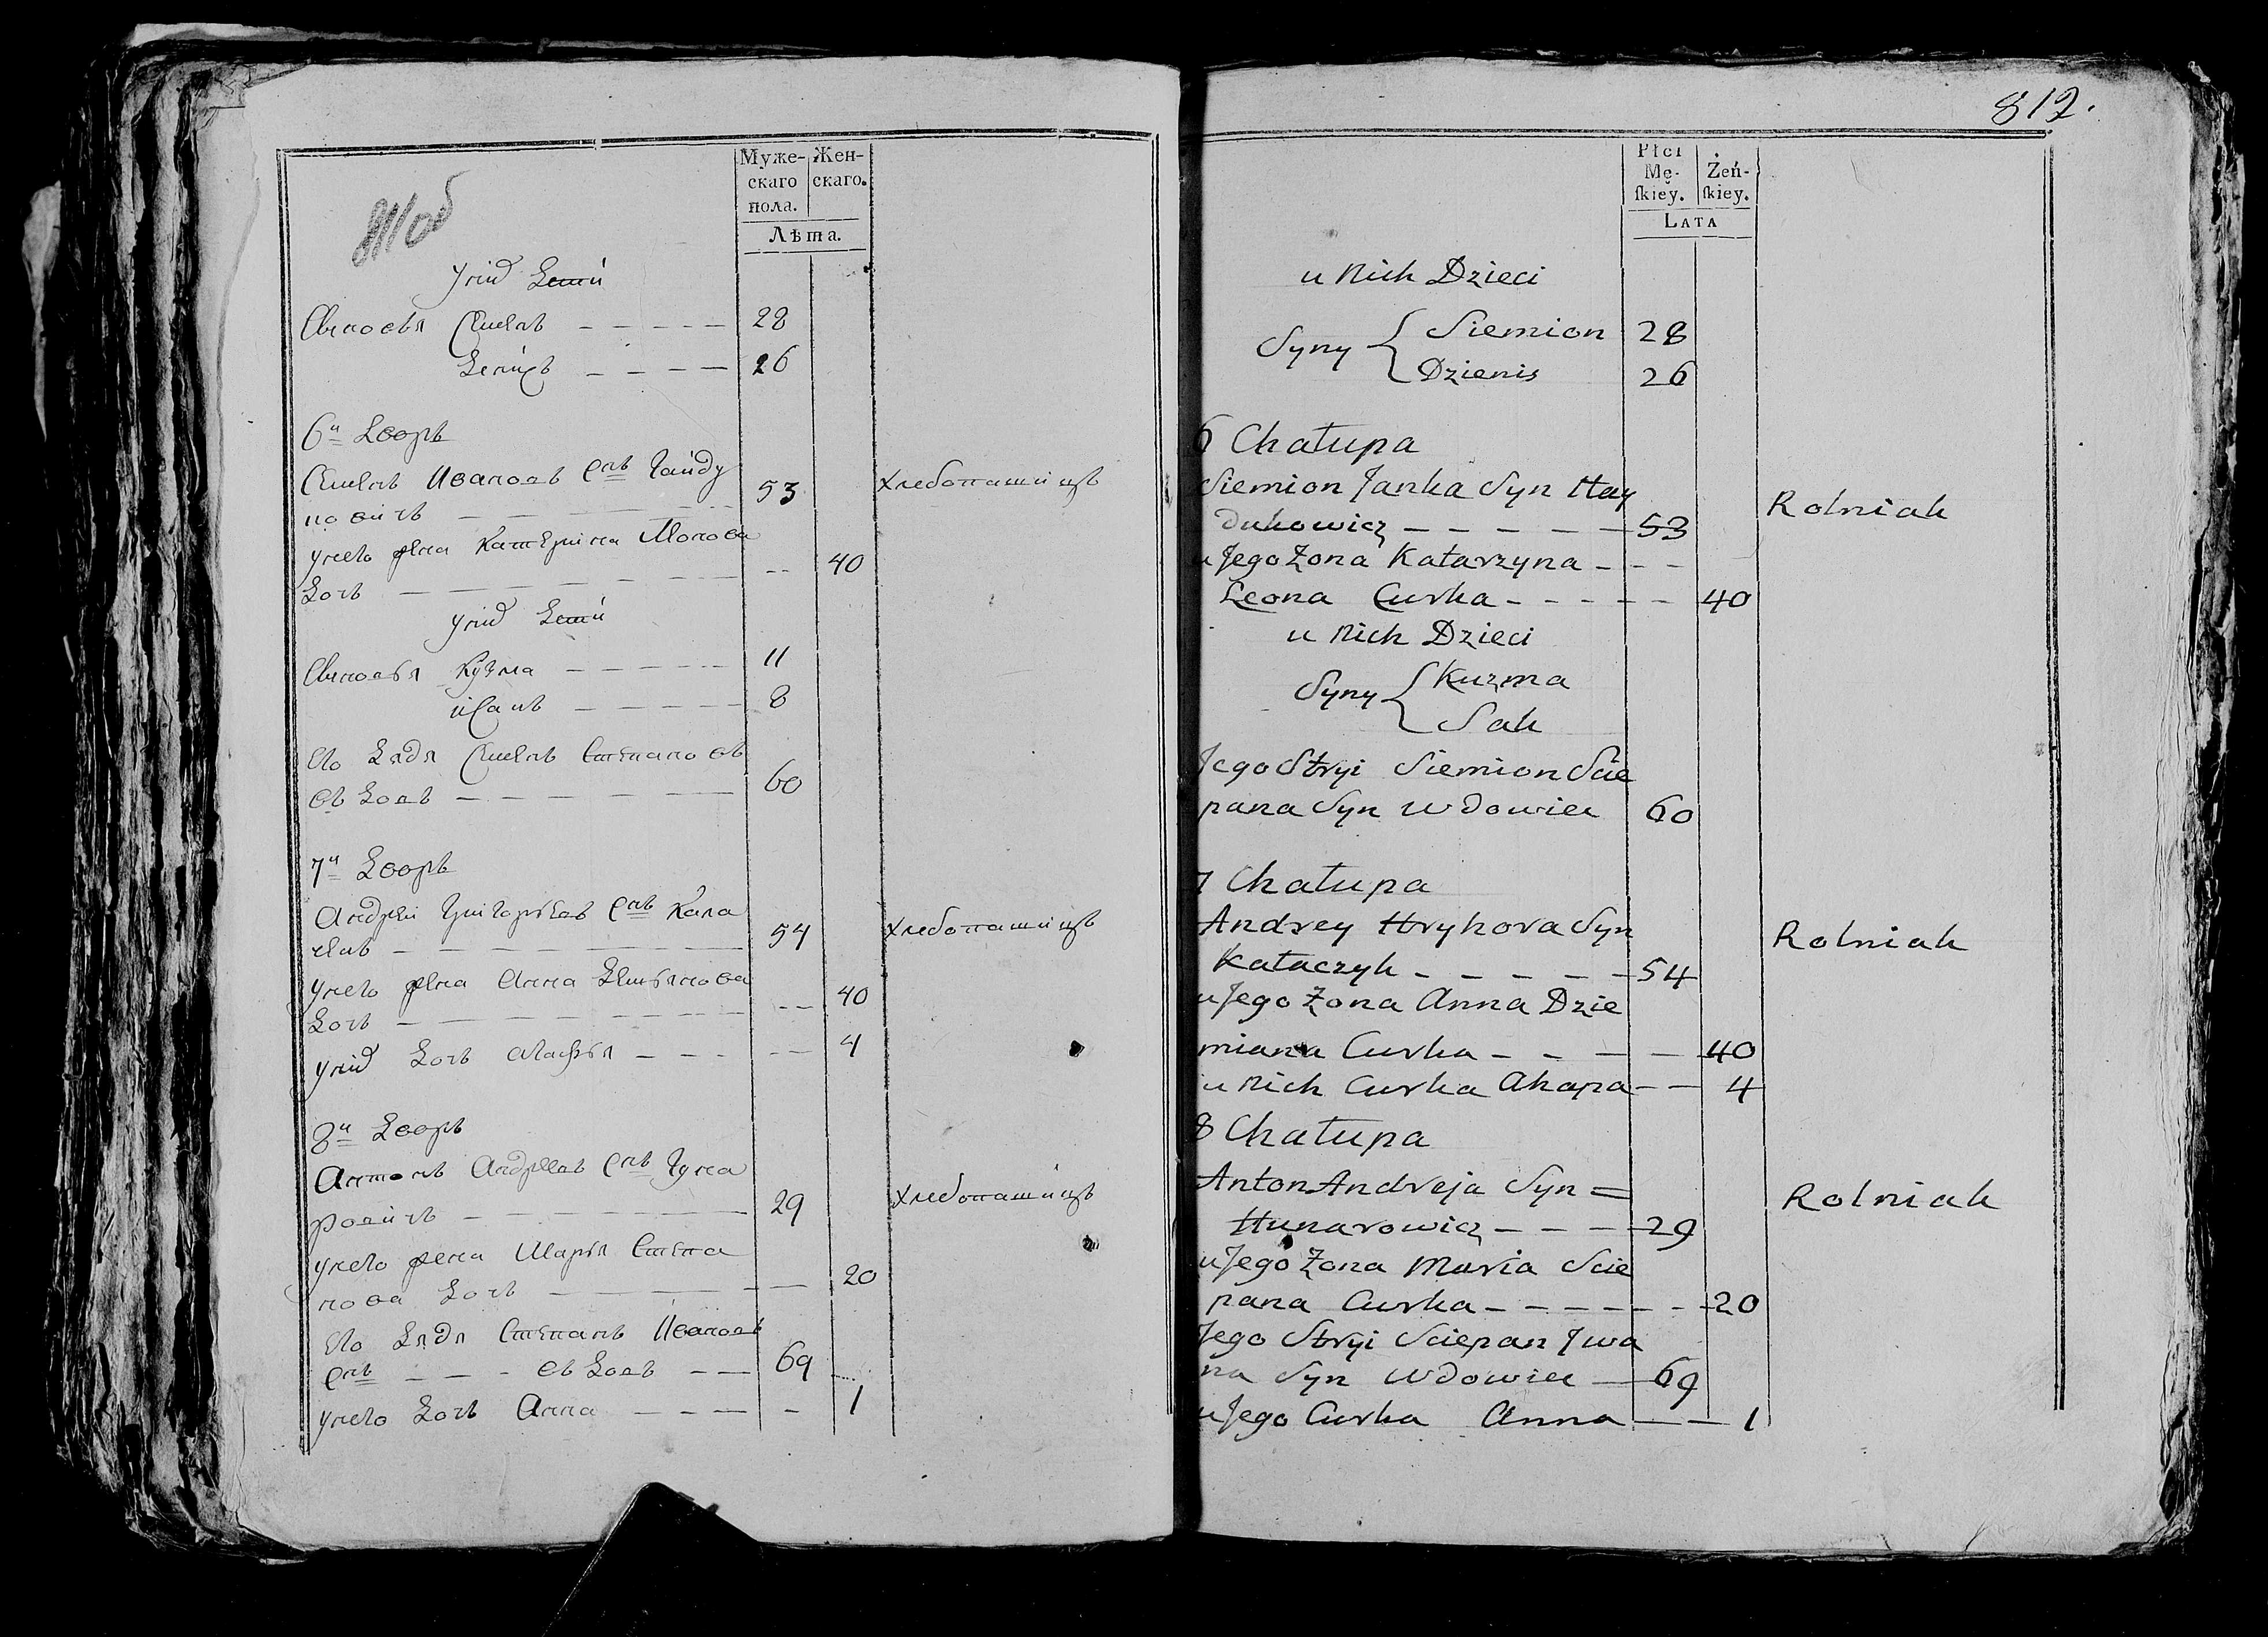 811 об
Муже-
скаго
пола.
Жен-
скаго.
Лѣта.
у нихъ дети
Сыновья Семенъ — — — — — 28
Денисъ — — — — 26
6й дворъ
Семенъ Ивановъ снъ Гайду
ковичъ — — — — — 53 хлебопашицъ
у него жена Катерина Леонова
дочь — — — — — — — 40
у нихъ дети
Сыновья Кузма — — — — — 11
Исакъ — — — — — 8
его дядя Семенъ Степановъ
вдовъ — — — — — — 60
7й дворъ
Андрей Григорьевъ снъ Кала
чикъ — — — — — — 54 хлебопашицъ
у него жена Анна Демьянова
дочь — — — — — — — 40
у нихъ дочь Агафья — — — — — 4
8й дворъ
Антонъ Андреевъ снъ Гуна
ровичъ — — — — — — 29 хлебопашицъ
у него жена Марья Степа
нова дочь — — — — — 20
его дядя Степанъ Ивановъ
снъ — — — вдовъ — — 69
у него дочь Анна — — — — 1
812.
Płci
Mę-
skiey.
Żeń-
skiey.
LATA
u Nich Dzieci
Syny { Siemion 28
Dzienis 26
6 Chałupa
Siemion Janka Syn Hay
dukowicz — — — — — 53 Rolniak
u Jego Żona Katarzyna — — —
Leona Curka — — — — — 40
u Nich Dzieci
Syny { Kuzma
Sak
Jego Stryi Siemion Scie
pana Syn Wdowiec 60
7 Chałupa
Andrey Hryhora Syn
Kałaczyk — — — — — 54 Rolniak
u Jego Żona Anna Dzie
miana Curka — — — — 40
u Nich Curka Ahapa — — 4
8 Chałupa
Anton Andreja Syn =
Hunarowicz — — — — 29 Rolniak
u Jego Żona Maria Scie
pana Curka — — — — — — — 20
Jego Stryi Sciepan Iwa
na Syn Wdowiec — 69
u Jego Curka Anna — — 1